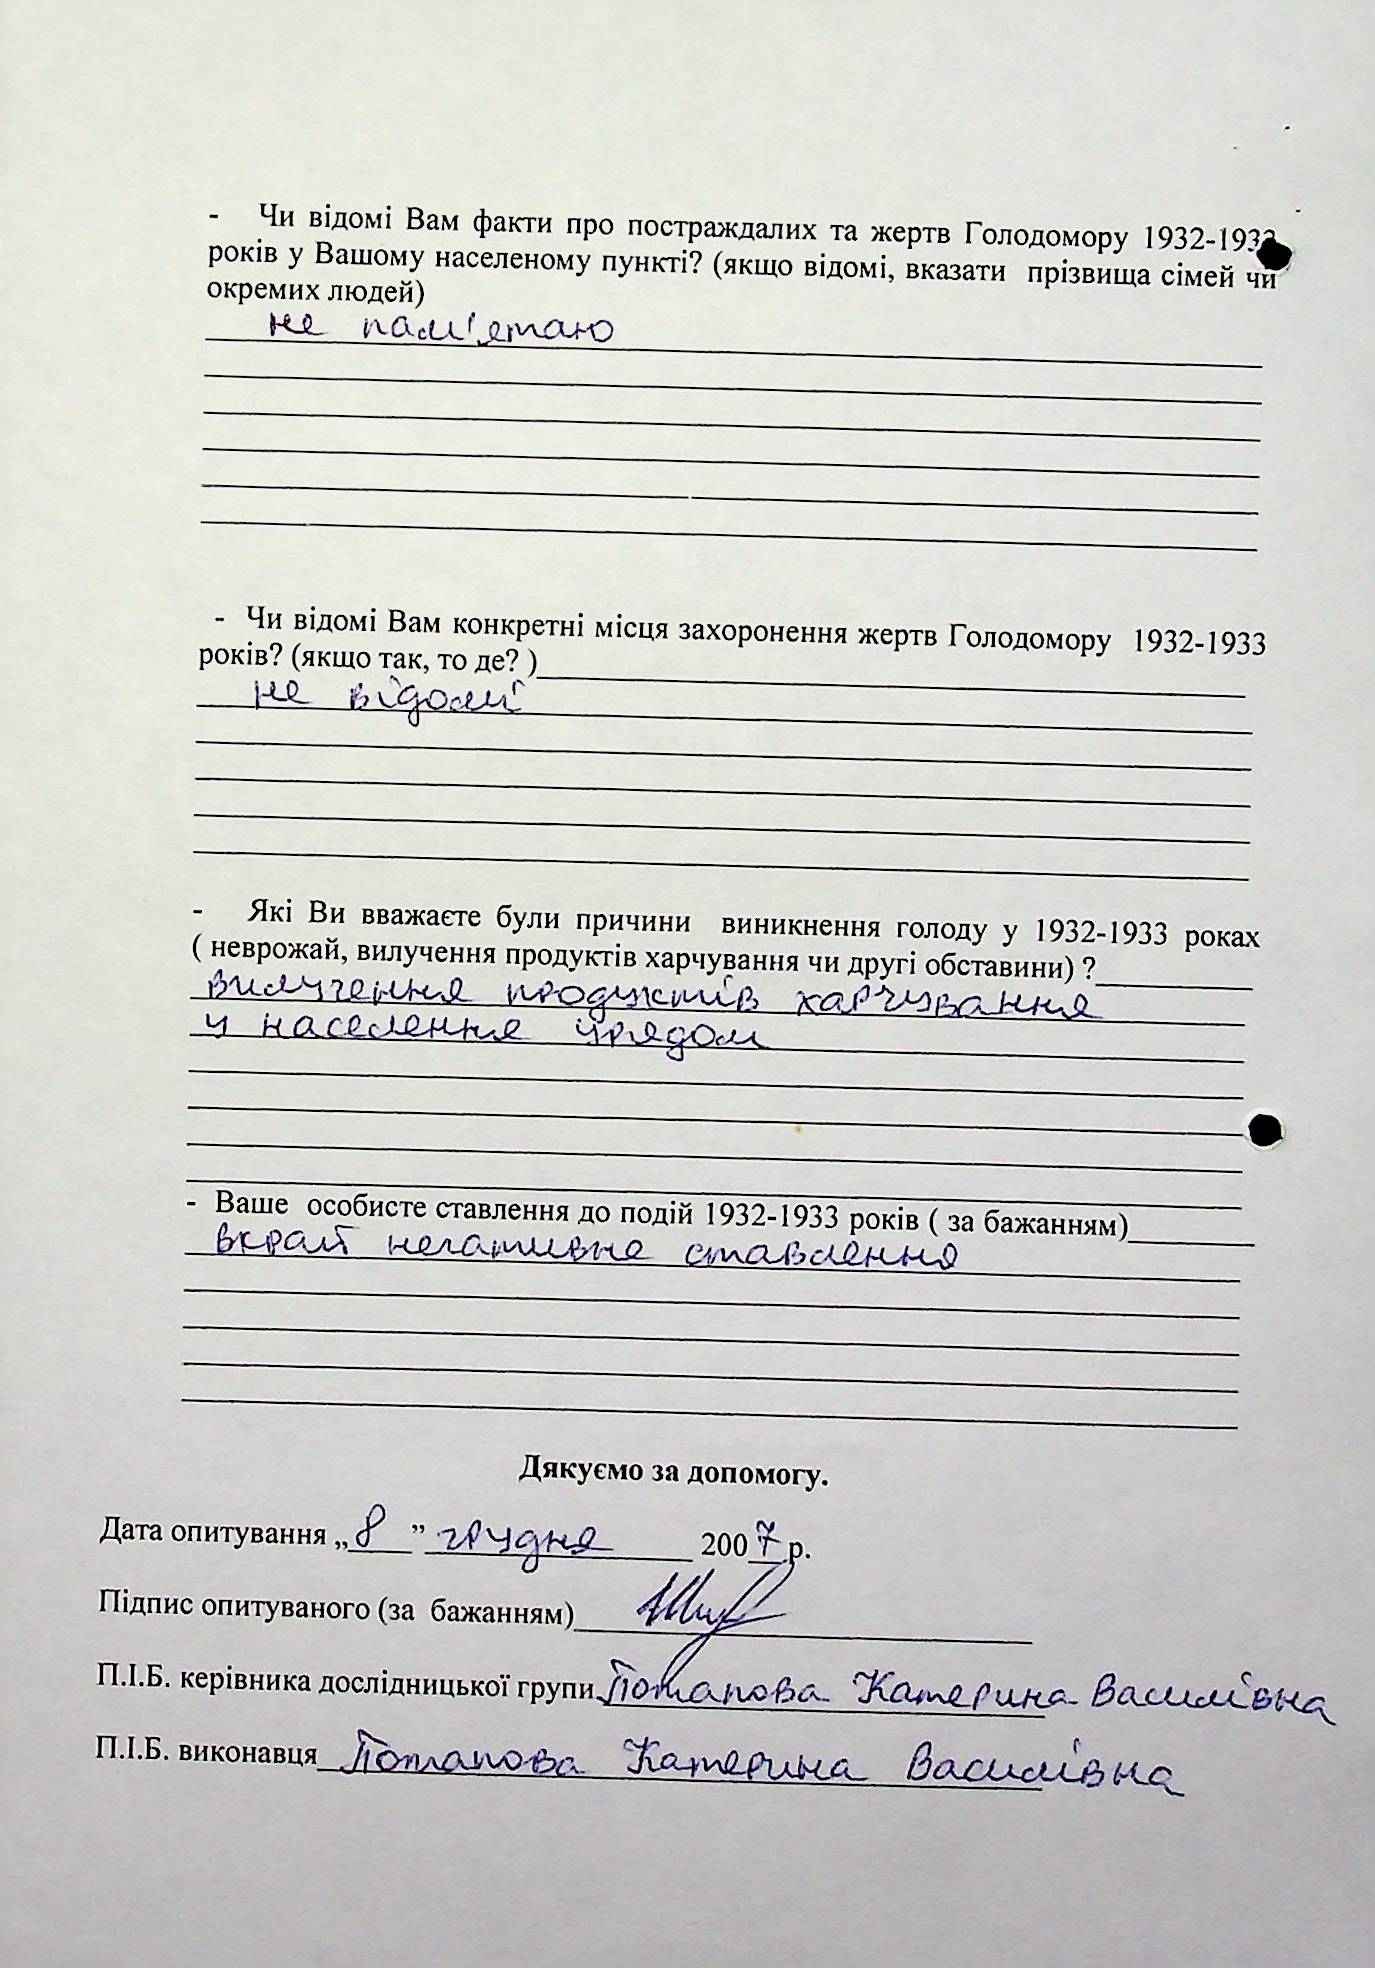 - Чи відомі Вам факти про постраждалих та жертв Голодомору 1932-1933
років у Вашому населеному пункті? (якщо відомі, вказати прізвища сімей чи
окремих людей)
не пам'ятаю
- Чи відомі Вам конкретні місця захоронення жертв Голодомору 1932-1933
років? (якщо так, то де? )
не відомі
- Які Ви вважаєте були причини виникнення голоду у 1932-1933 роках
( неврожай, вилучення продуктів харчування чи другі обставини) ?
вилучення продуктів харчування
у населення урядом
- Ваше особисте ставлення до подій 1932-1933 років ( за бажанням)
вкрай негативне ставлення
Дякуємо за допомогу.
Дата опитування „8" грудня 2007 р.
Підпис опитуваного (за бажанням)
П.І.Б. керівника дослідницької групи Потапова Катерина Василівна
П.І.Б. виконавця Потапова Катерина Василівна